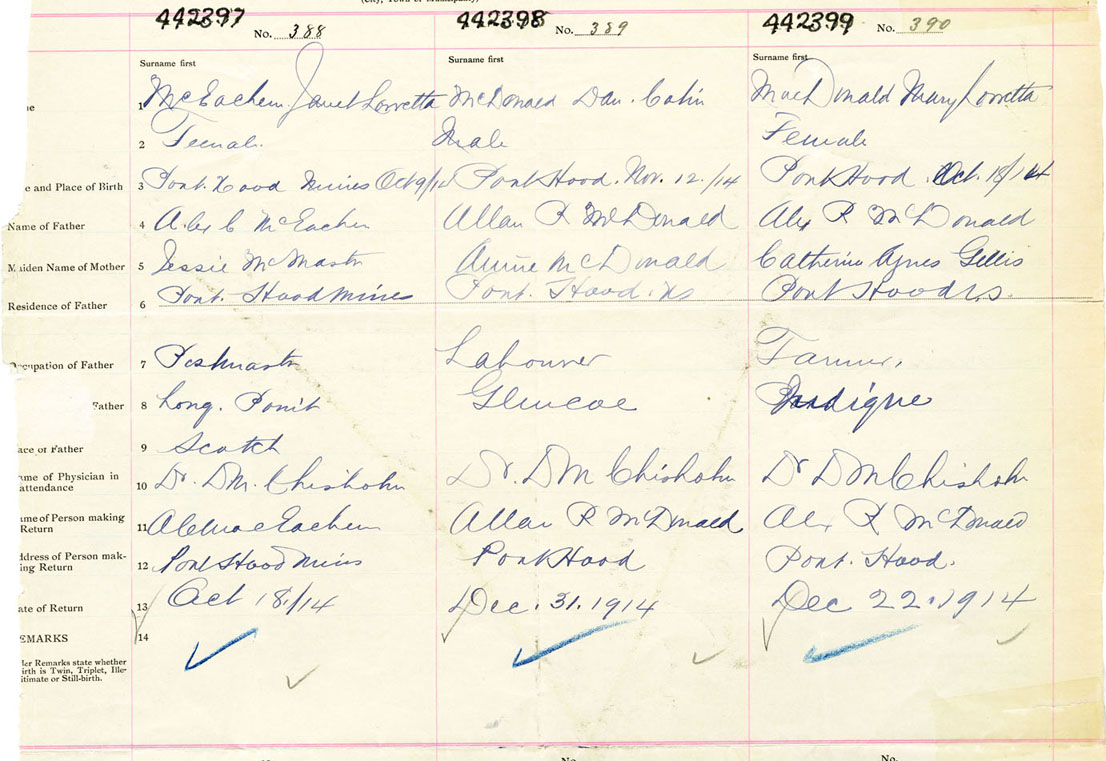 (City, Town or Municipality)
442397 442398 442399
No. 388 No. 389 No. 390
Surname first Surname first Surname first
1 McEachern Janet Lorretta McDonald Dan. Colin MacDonald Mary Lorretta
2 Female Male Female
e and Place of Birth 3 Port Hood Mines Oct 9/14 Port Hood. Nov. 12/14 Port Hood Oct. 18/14
Name of Father 4 Alex C McEachern Allan R McDonald Alex R McDonald
Maiden Name of Mother 5 Jessie McMaster Annie McDonald Catherine Agnes Gillis
Residence of Father 6 Port Hood Mines Port Hood. NS Port Hood N.S.
Occupation of Father 7 Postmaster Labourer Farmer.
Father 8 Long. Point Glencoe Judique
ace of Father 9 Scotch
ame of Physician in
attendance 10 Dr. D.M. Chisholm Dr. DM Chisholm Dr DM Chisholm
ame of Person making
Return 11 Allan R McDonald Alex R McDonald
ddress of Person mak-
ing Return 12 Port Hood Mines Port Hood Port Hood.
ate of Return 13 Oct 18/14 Dec. 31. 1914 Dec 22. 1914
EMARKS 14
der Remarks state whether
irth is Twin, Triplet, Ille-
itimate or Still-birth.
No. No.